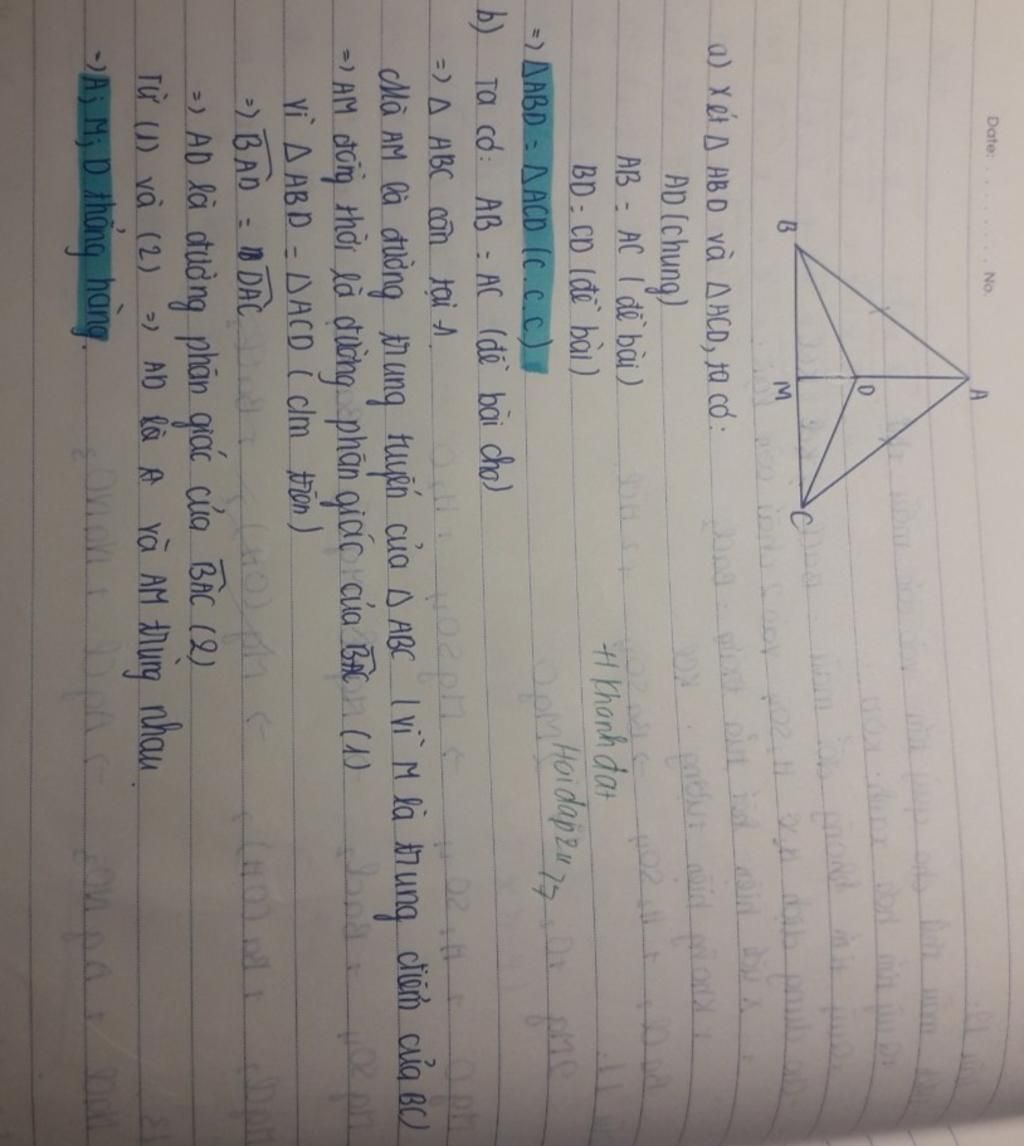 Date: . . . . . . . . . No.
A
B
D
M
C
a) Xét Δ ABD và Δ ACD, ta có:
AD (chung)
AB = AC (đề bài)
BD = CD (đề bài)
=> ΔABD = ΔACD (c.c.c)
H Khanh dat
Hoidap247
b) Ta có: AB = AC (đề bài cho)
=> Δ ABC cân tại A.
Mà AM là đường trung tuyến của Δ ABC (vì M là trung điểm của BC)
=> AM đồng thời là đường phân giác của BAC (1)
Vì Δ ABD = Δ ACD (c/m trên)
=> BAD = DAC
=> AD là đường phân giác của BAC (2)
Từ (1) và (2) => AD là A và AM trùng nhau.
=> A; M; D thẳng hàng.